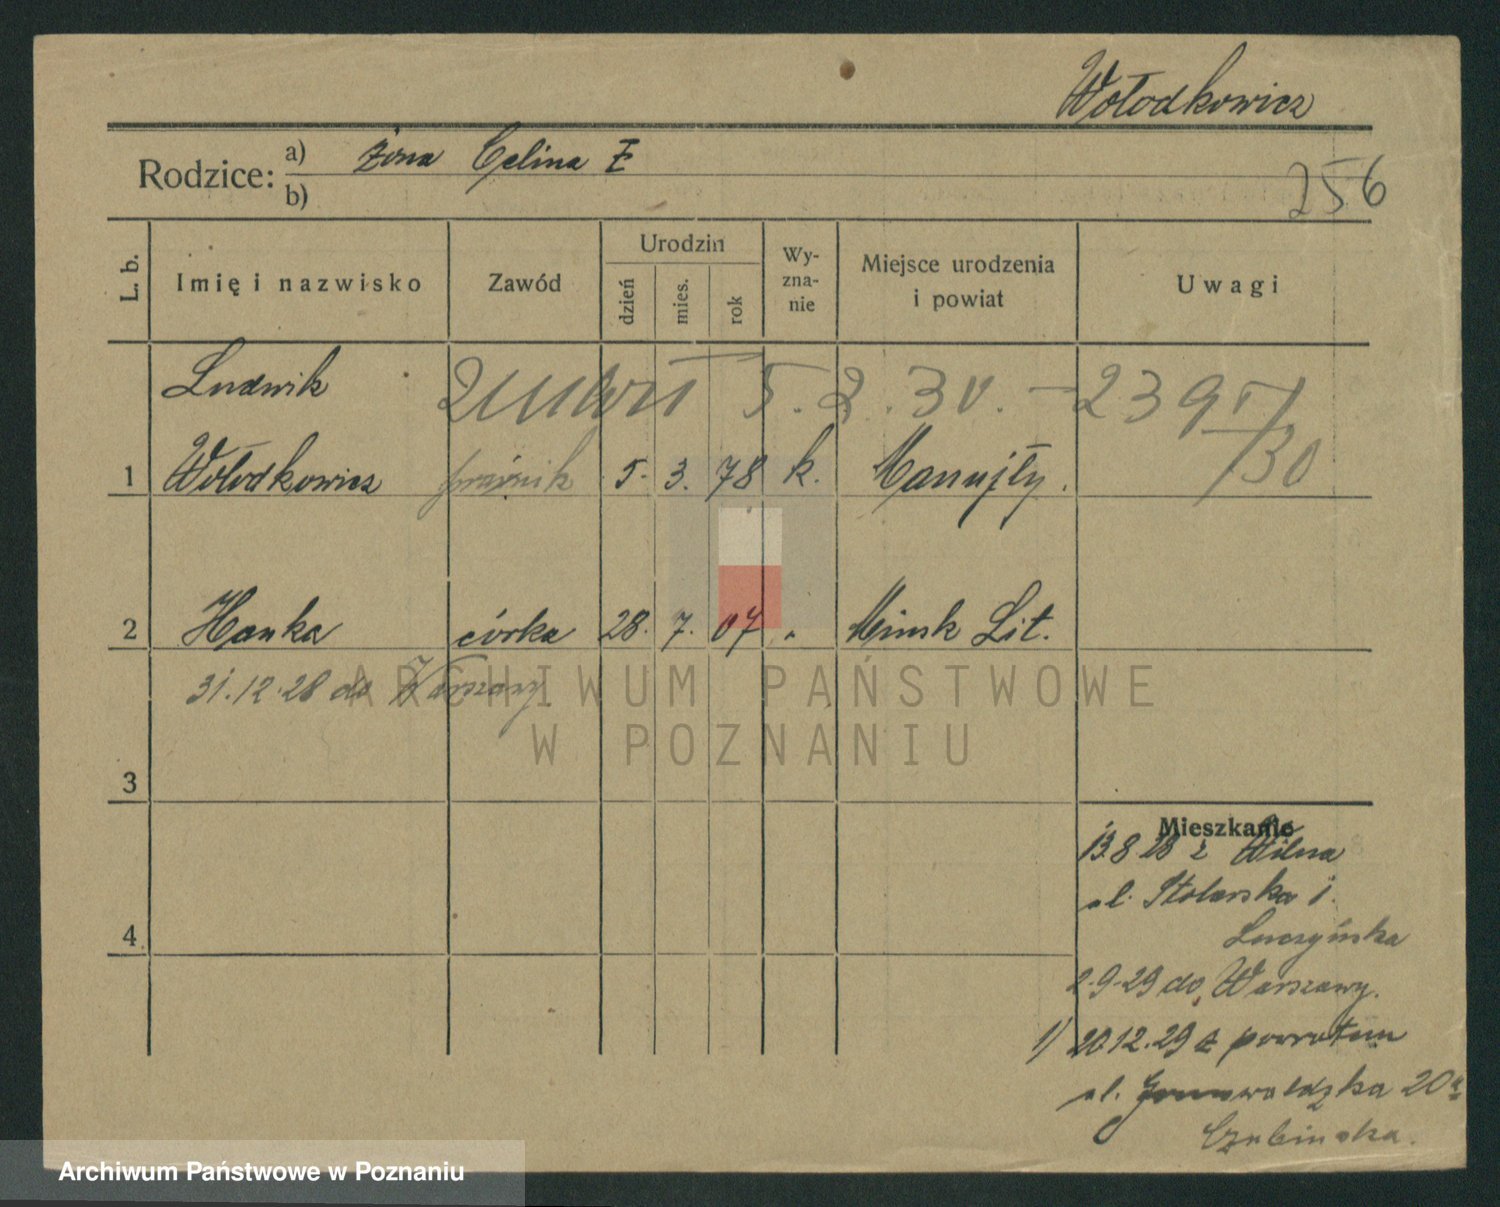 Wołodkowicz
Rodzice: a) żona Celina
b)
256
L. b.
Imię i nazwisko
Zawód
Urodzin
dzień
mies.
rok
Wy-
zna-
nie
Miejsce urodzenia
i powiat
Uwagi
Ludwik
zmarł 5.2.30. – 239 /30
1 Wołodkowicz prawnik 5. 3. 78 k. Manujły.
2 Hanka córka 28. 7. 07 " Minsk Lit.
31.12.28 do Warszawy
3
4
Mieszkanie
13.8 28 z Wilna
ul. Stolarska 1.
Łuczyńska
2.9.29 do Warszawy.
1) 20.12.29 z powrotem
ul. Grunwaldzka 20a
Czubińska.
ARCHIWUM PAŃSTWOWE
W POZNANIU
Archiwum Państwowe w Poznaniu